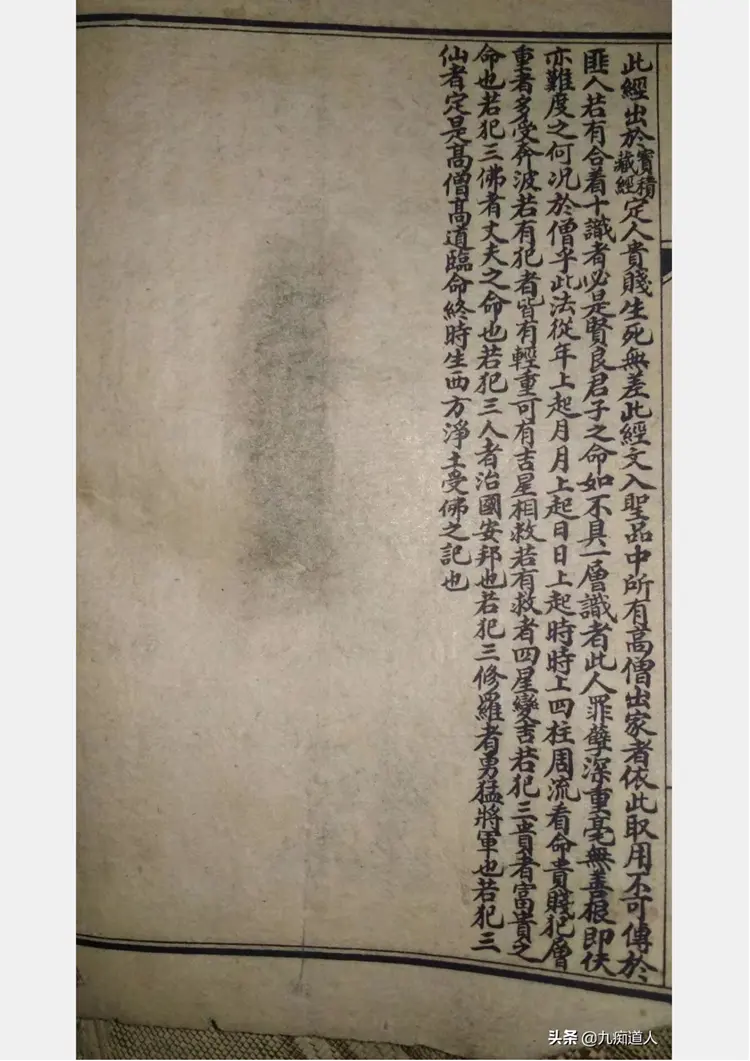 此經出於寶積藏經定人貴賤生死無差此經文入聖品中所有高僧出家者依此取用不可傳於
匪人若有合着十識者必是賢良君子之命如不具一層識者此人罪孽深重毫無善根即伏
亦難度之何況於僧乎此法從年上起月月上起日日上起時時上四柱周流看命貴賤犯層
重者多受奔波若有犯者皆有輕重可有吉星相救若有救者四星變吉若犯三貴者富貴之
命也若犯三佛者丈夫之命也若犯三人者治國安邦也若犯三修羅者勇猛將軍也若犯三
仙者定是高僧高道臨命終時生西方淨土受佛之記也
头条 @九痴道人